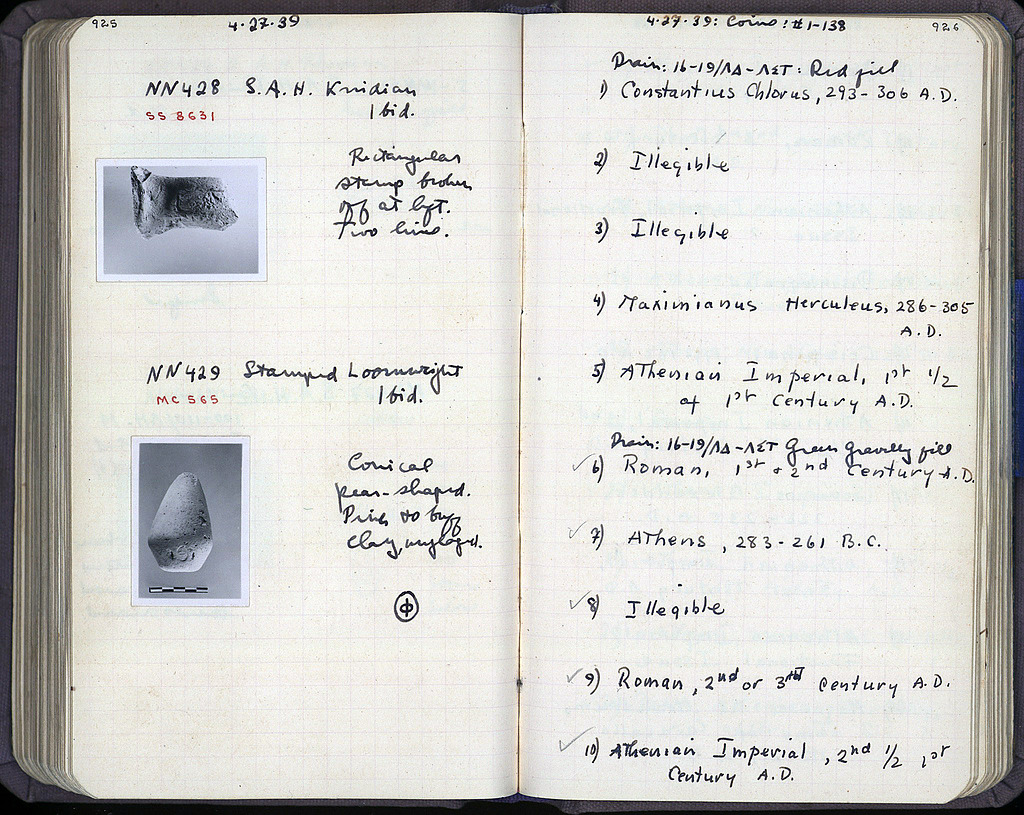 925
4·27·39
NN428 S.A.H. Knidian
SS 8631
Ibid.
Rectangular
stamp broken
off at left.
Two lines.
NN429 Stamped Loomweight
MC 565
Ibid.
Conical
pear-shaped.
Pink to buff
clay, unglazed.
Φ
4·27·39: Coins: #1-138
926
Drain: 16-19/ΛΔ-ΛΣΤ: Red fill
1) Constantius Chlorus, 293-306 A.D.
2) Illegible
3) Illegible
4) Maximianus Herculeus, 286-305
A.D.
5) Athenian Imperial, 1st 1/2
of 1st Century A.D.
Drain: 16-19/ΛΔ-ΛΣΤ Green Gravelly fill
6) Roman, 1st & 2nd Century A.D.
7) Athens, 283-261 B.C.
8) Illegible
9) Roman, 2nd or 3rd Century A.D.
10) Athenian Imperial, 2nd 1/2 1st
Century A.D.